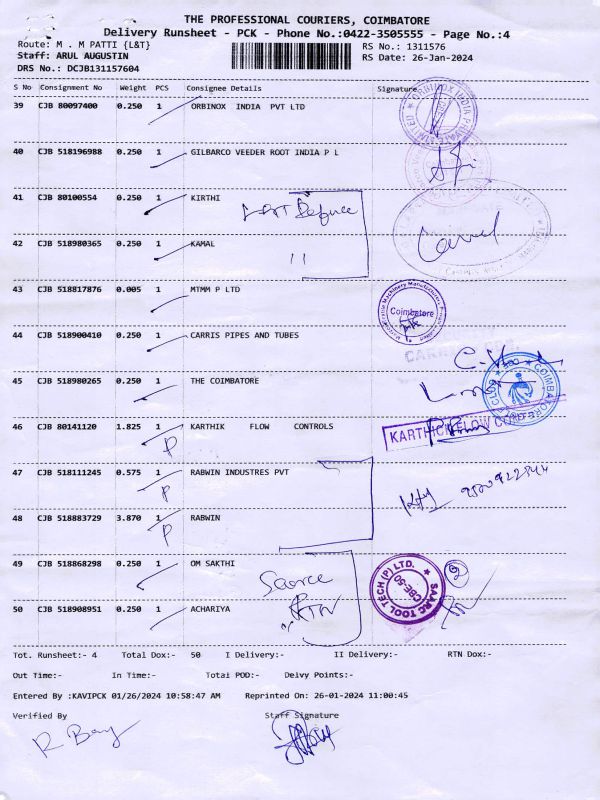 THE PROFESSIONAL COURIERS, COIMBATORE
Delivery Runsheet - PCK - Phone No.:0422-3505555 - Page No.:4
Route: M . M PATTI {L&T}
RS No.: 1311576
Staff: ARUL AUGUSTIN
RS Date: 26-Jan-2024
DRS No.: DCJB131157604
S No Consignment No Weight PCS Consignee Details Signature
39 CJB 80097400 0.250 1 ORBINOX INDIA PVT LTD
40 CJB 518196988 0.250 1 GILBARCO VEEDER ROOT INDIA P L
41 CJB 80100554 0.250 1 KIRTHI
42 CJB 518980365 0.250 1 KAMAL
43 CJB 518817876 0.005 1 MTMM P LTD
Coimbatore
44 CJB 518900410 0.250 1 CARRIS PIPES AND TUBES
45 CJB 518980265 0.250 1 THE COIMBATORE
46 CJB 80141120 1.825 1 KARTHIK FLOW CONTROLS
P
47 CJB 518111245 0.575 1 RABWIN INDUSTRES PVT
P
48 CJB 518883729 3.870 1 RABWIN
P
49 CJB 518868298 0.250 1 OM SAKTHI
SAARC TOOL TECH (P) LTD.
CBE-50
50 CJB 518908951 0.250 1 ACHARIYA
Tot. Runsheet:- 4 Total Dox:- 50 I Delivery:- II Delivery:- RTN Dox:-
Out Time:- In Time:- Total POD:- Delvy Points:-
Entered By :KAVIPCK 01/26/2024 10:58:47 AM Reprinted On: 26-01-2024 11:00:45
Verified By Staff Signature